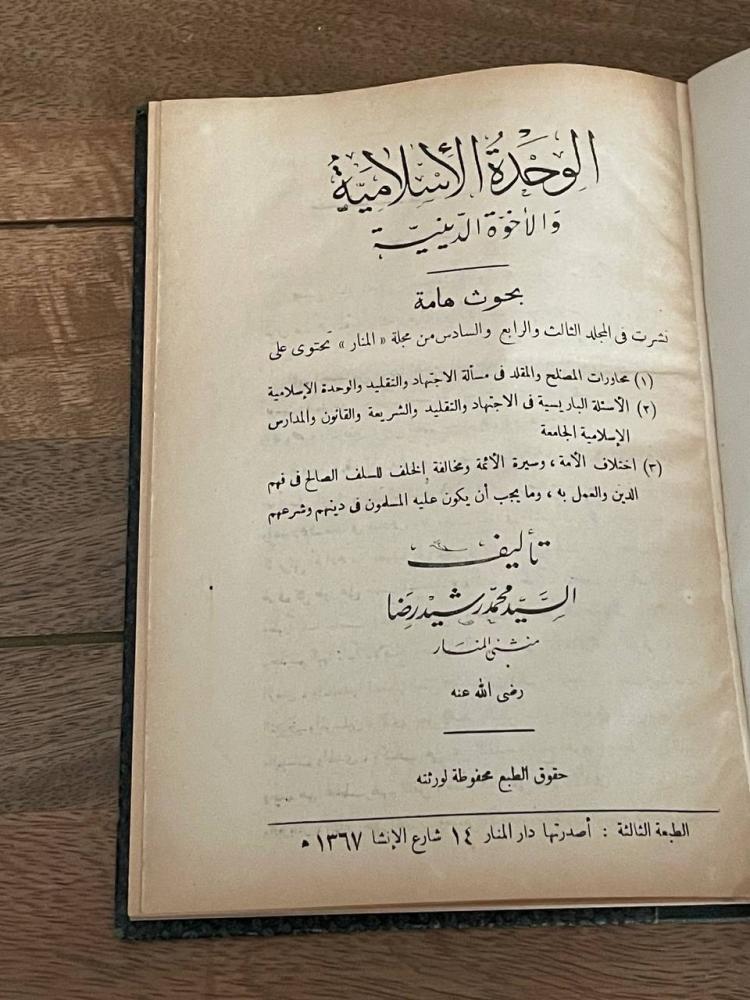 الوحدة الأسلامية
والأخوة الدينية
بحوث هامة
نشرت فى المجلد الثالث والرابع والسادس من مجلة « المنار » تحتوى على
(١) محاورات المصلح والمقلد فى مسألة الاجتهاد والتقليد والوحدة الإسلامية
(٢) الأسئلة الباريسية فى الاجتهاد والتقليد والشريعة والقانون والمدارس
الإسلامية الجامعة
(٣) اختلاف الأمة ، وسيرة الأئمة ومخالفة الخلف للسلف الصالح فى فهم
الدين والعمل به ، وما يجب أن يكون عليه المسلمون فى دينهم وشرعهم
تأليف
السيد محمد رشيد رضا
منشئ المنار
رضى الله عنه
حقوق الطبع محفوظة لورثته
الطبعة الثالثة : أصدرتها دار المنار ١٤ شارع الإنشا ١٣٦٧ ه